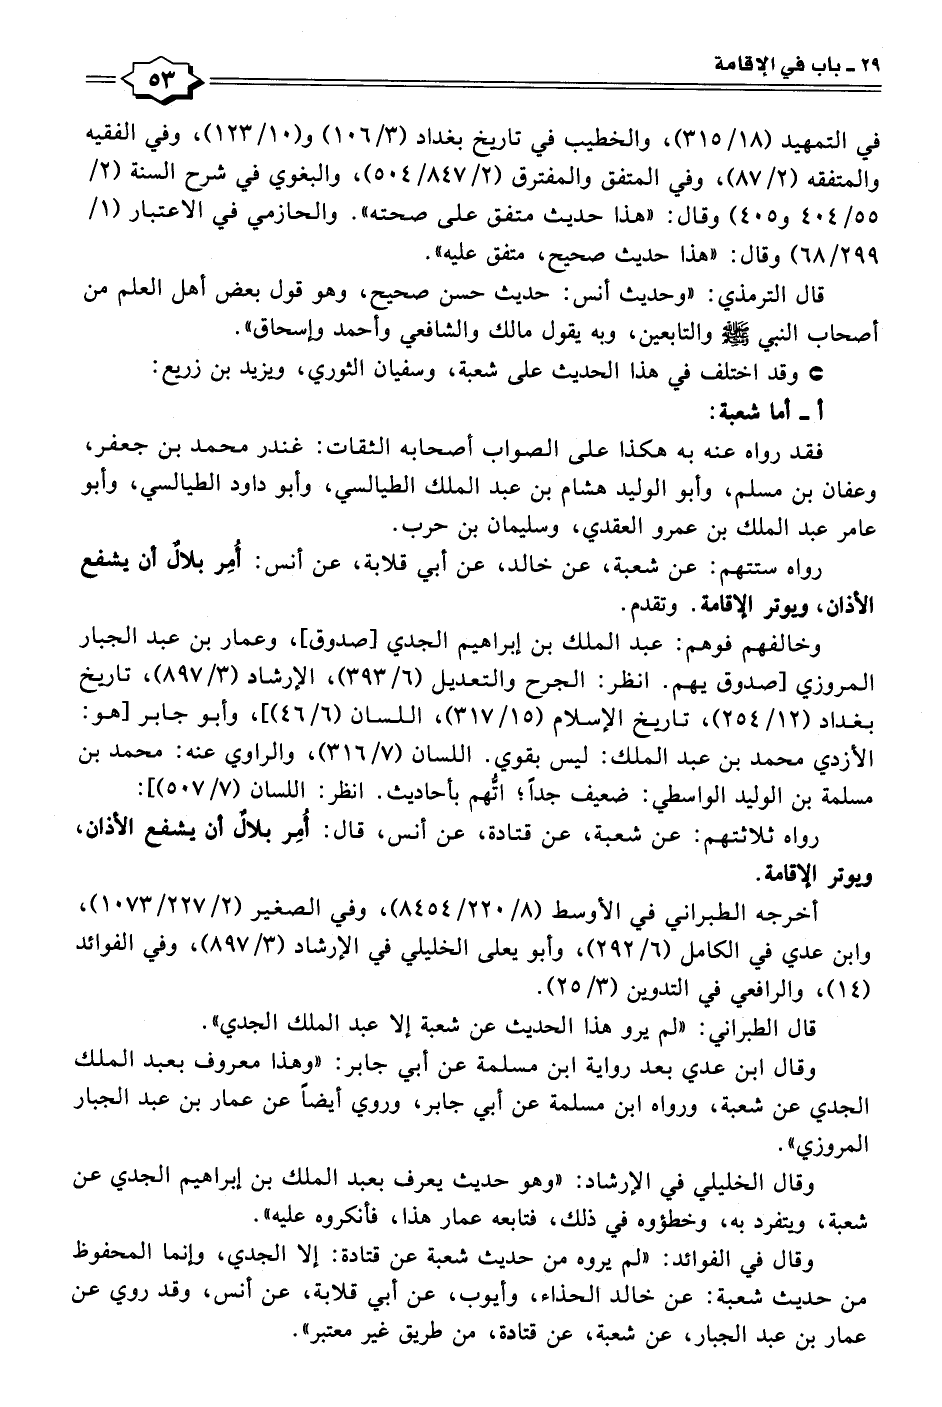 ٢٩ - باب في الإقامة
٥٣
في التمهيد (٣١٥/١٨)، والخطيب في تاريخ بغداد (١٠٦/٣) و(١٢٣/١٠)، وفي الفقيه
والمتفقه (٨٧/٢)، وفي المتفق والمفترق (٥٠٤/٨٤٧/٢)، والبغوي في شرح السنة (٢/
٤٠٤/٥٥ و٤٠٥) وقال: «هذا حديث متفق على صحته». والحازمي في الاعتبار (١/
٦٨/٢٩٩) وقال: «هذا حديث صحيح، متفق عليه».
قال الترمذي: «وحديث أنس: حديث حسن صحيح، وهو قول بعض أهل العلم من
أصحاب النبي ﷺ والتابعين، وبه يقول مالك والشافعي وأحمد وإسحاق».
وقد اختلف في هذا الحديث على شعبة، وسفيان الثوري، ويزيد بن زريع:
أ - أما شعبة:
فقد رواه عنه به هكذا على الصواب أصحابه الثقات: غندر محمد بن جعفر،
وعفان بن مسلم، وأبو الوليد هشام بن عبد الملك الطيالسي، وأبو داود الطيالسي، وأبو
عامر عبد الملك بن عمرو العقدي، وسليمان بن حرب.
رواه ستتهم: عن شعبة، عن خالد، عن أبي قلابة، عن أنس: أُمِر بلالٌ أن يشفع
الأذان، ويوتر الإقامة. وتقدم.
وخالفهم فوهم: عبد الملك بن إبراهيم الجدي [صدوق]، وعمار بن عبد الجبار
المروزي [صدوق يهم. انظر: الجرح والتعديل (٣٩٣/٦)، الإرشاد (٨٩٧/٣)، تاريخ
بغداد (٢٥٤/١٢)، تاريخ الإسلام (٣١٧/١٥)، اللسان (٤٦/٦)]، وأبو جابر [هو:
الأزدي محمد بن عبد الملك: ليس بقوي. اللسان (٣١٦/٧)، والراوي عنه: محمد بن
مسلمة بن الوليد الواسطي: ضعيف جداً؛ اتُّهم بأحاديث. انظر: اللسان (٥٠٧/٧)]:
رواه ثلاثتهم: عن شعبة، عن قتادة، عن أنس، قال: أُمِر بلالٌ أن يشفع الأذان،
ويوتر الإقامة.
أخرجه الطبراني في الأوسط (٨٤٥٤/٢٢٠/٨)، وفي الصغير (١٠٧٣/٢٢٧/٢)،
وابن عدي في الكامل (٢٩٢/٦)، وأبو يعلى الخليلي في الإرشاد (٨٩٧/٣)، وفي الفوائد
(١٤)، والرافعي في التدوين (٢٥/٣).
قال الطبراني: «لم يرو هذا الحديث عن شعبة إلا عبد الملك الجدي».
وقال ابن عدي بعد رواية ابن مسلمة عن أبي جابر: «وهذا معروف بعبد الملك
الجدي عن شعبة، ورواه ابن مسلمة عن أبي جابر، وروي أيضاً عن عمار بن عبد الجبار
المروزي».
وقال الخليلي في الإرشاد: «وهو حديث يعرف بعبد الملك بن إبراهيم الجدي عن
شعبة، ويتفرد به، وخطؤوه في ذلك، فتابعه عمار هذا، فأنكروه عليه».
وقال في الفوائد: «لم يروه من حديث شعبة عن قتادة: إلا الجدي، وإنما المحفوظ
من حديث شعبة: عن خالد الحذاء، وأيوب، عن أبي قلابة، عن أنس، وقد روي عن
عمار بن عبد الجبار، عن شعبة، عن قتادة، من طريق غير معتبر».